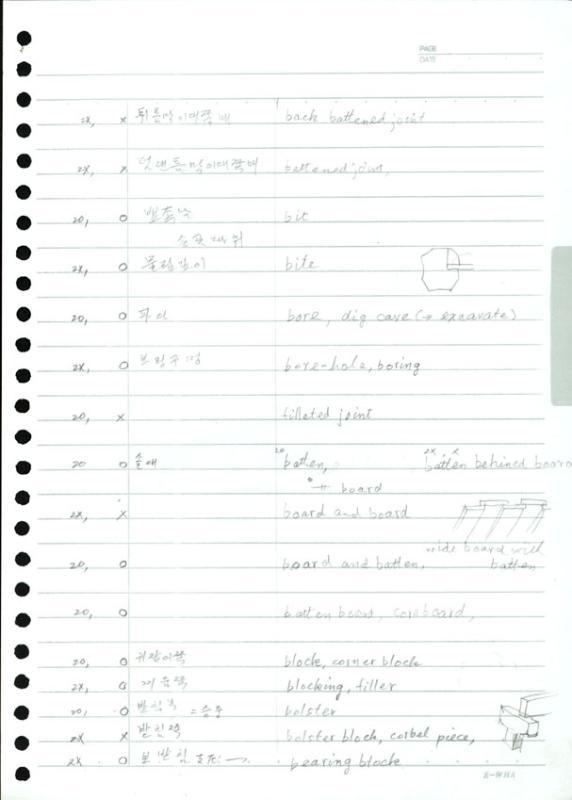 PAGE
DATE
2X, x 뒤틈막이대쪽벽 back battened joint
2X, x 덧댄틈막이대쪽벽 battened joint,
20, o bit
2X, o 물림길이 bite
20, o 파다 bore, dig cave (→ excavate)
2X, o 보링구멍 bore-hole, boring
20, x filleted joint
20 o 솔대 20 batten, 2X, x batten behined board
board
2X, x board and board
wide board with
20, o board and batten, batten
20, o batten board, coreboard,
20, o 귀잡이쪽 block, corner block
2X, o 끼움쪽 blocking, filler
20, o bolster
2X x 받침쪽 bolster block, corbel piece,
2X o 보받침 bearing block